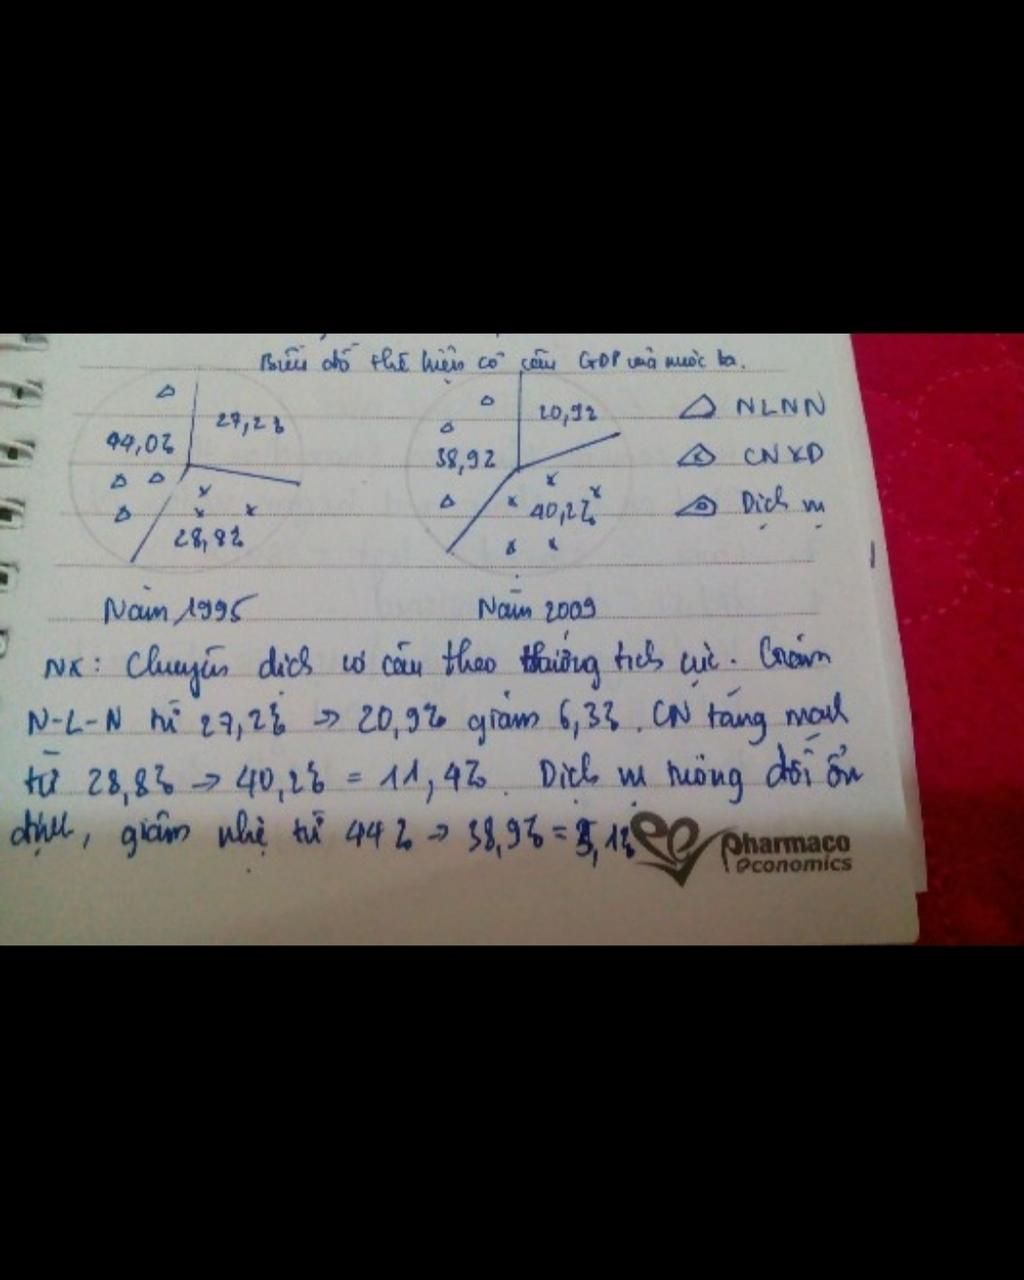 Biểu đồ thể hiện cơ cấu GDP của nước ta.
44,0%
27,2%
28,8%
38,9%
20,9%
40,2%
NLNN
CNXD
Dịch vụ
Năm 1995
Năm 2009
NX: Chuyển dịch cơ cấu theo hướng tích cực. Giảm
N-L-N từ 27,2% → 20,9% giảm 6,3%. CN tăng mạnh
từ 28,8% → 40,2% = 11,4%. Dịch vụ tương đối ổn
định, giảm nhẹ từ 44% → 38,9% = 5,1%
Pharmaco
economics